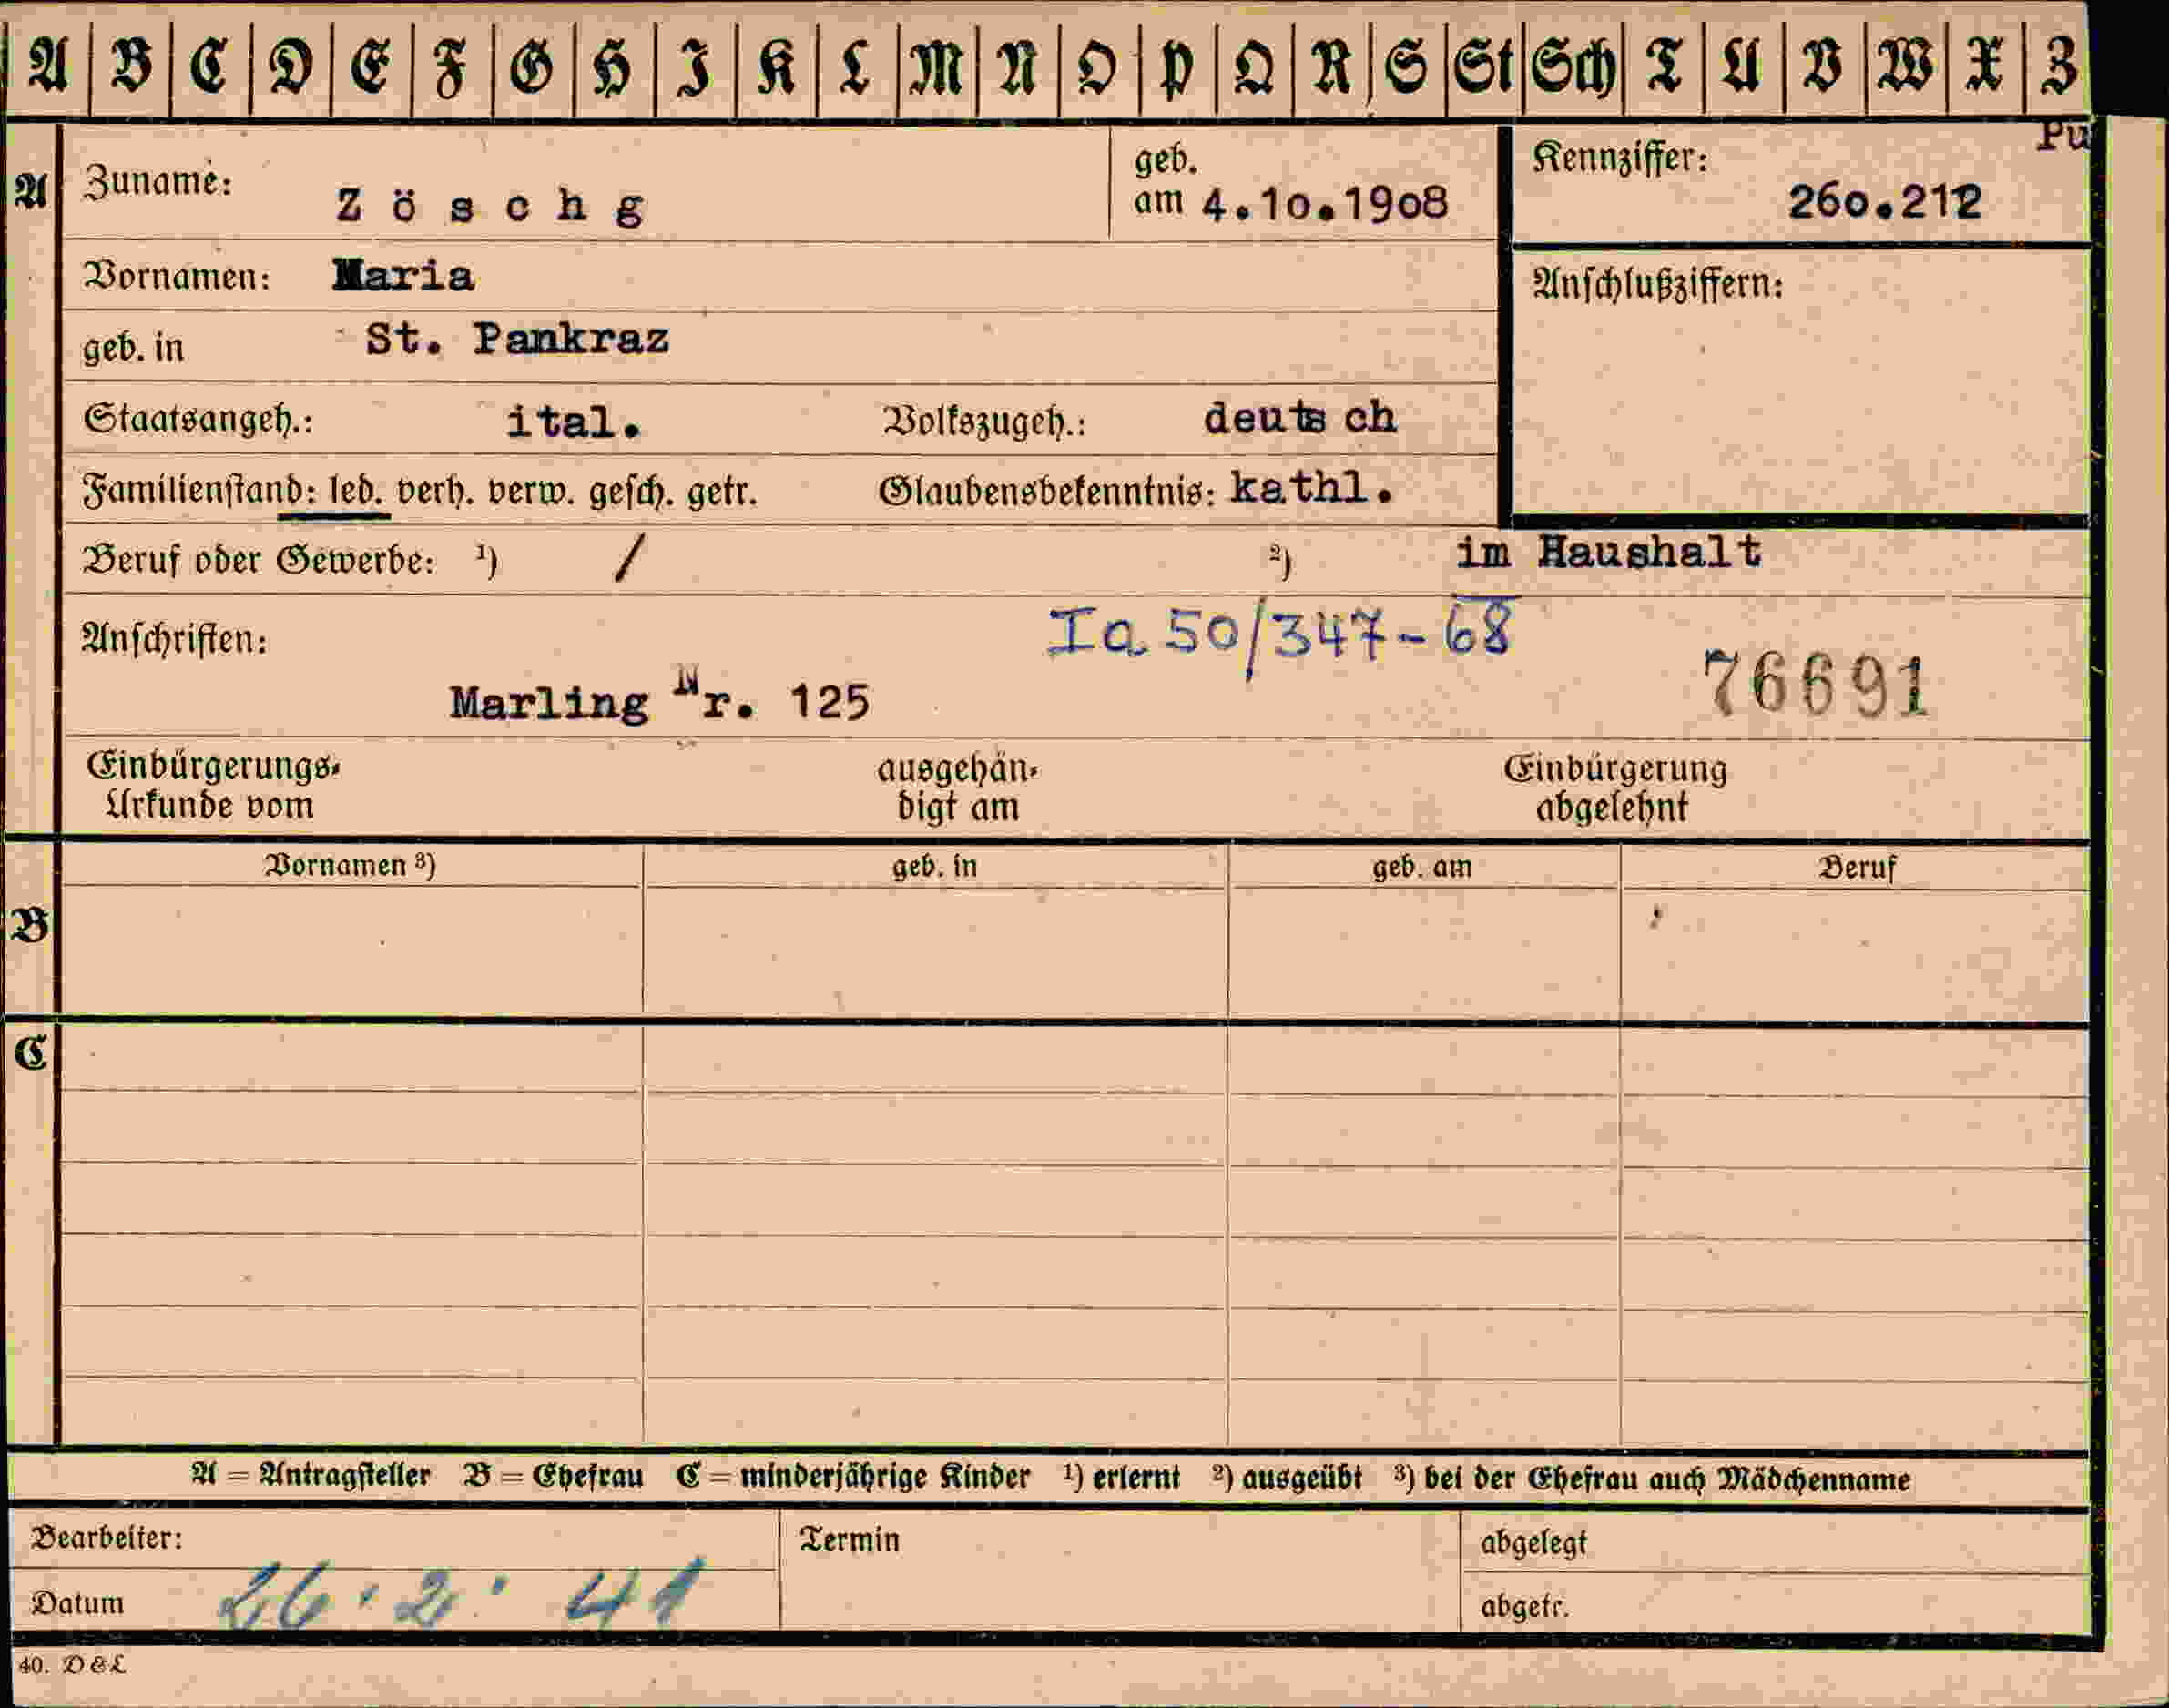 A B C D E F G H I K L M N O P Q R S St Sch T U V W X Z
Pu
A Zuname: Zöschg geb. am 4.10.1908 Kennziffer: 260.212
Vornamen: Maria Anschlußziffern:
geb. in St. Pankraz
Staatsangeh.: ital. Volkszugeh.: deutsch
Familienstand: led. verh. verw. gesch. getr. Glaubensbekenntnis: kathl.
Beruf oder Gewerbe: ¹) / ²) im Haushalt
Anschriften: Ia 50/347-68
Marling Nr. 125 76691
Einbürgerungs- ausgehän- Einbürgerung
Urkunde vom digt am abgelehnt
Vornamen ³) geb. in geb. am Beruf
B
C
A = Antragsteller B = Ehefrau C = minderjährige Kinder ¹) erlernt ²) ausgeübt ³) bei der Ehefrau auch Mädchenname
Bearbeiter: Termin abgelegt
Datum 26.2.41 abgetr.
40. D & L